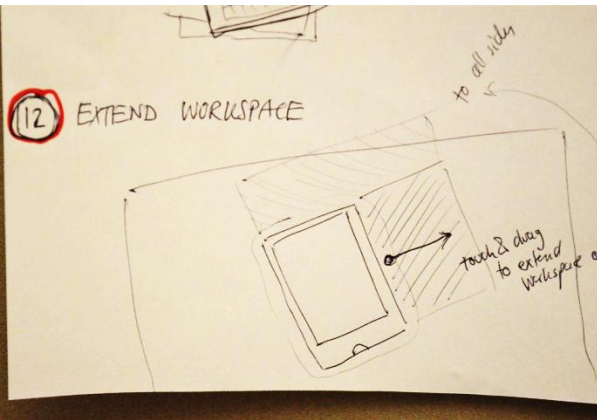 12 EXTEND WORKSPACE
to all sides
touch & drag
to extend
workspace